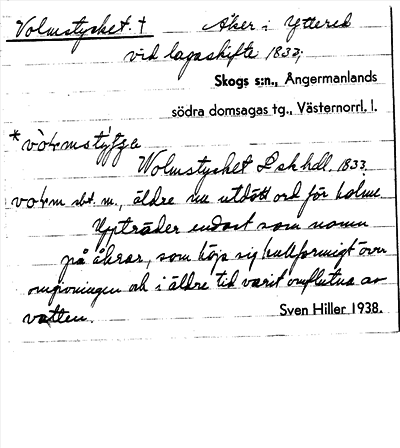 Volmstycket. † Åker i Yttered
vid lagaskifte 1833;
Skogs s:n., Ångermanlands
södra domsagas tg., Västernorrl. l.
Wolmstycket Lskhdl. 1833.
sbt. m., äldre nu utdött ord för holme
Uppträder endast som namn
på åkrar, som höja sig kullformigt över
omgivningen och i äldre tid varit omflutna av
vatten. Sven Hiller 1938.